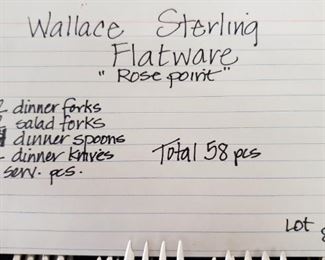 Wallace Sterling
Flatware
"Rose point"
2 dinner forks
2 salad forks
dinner spoons
dinner knives Total 58 pcs
serv. pcs.
Lot